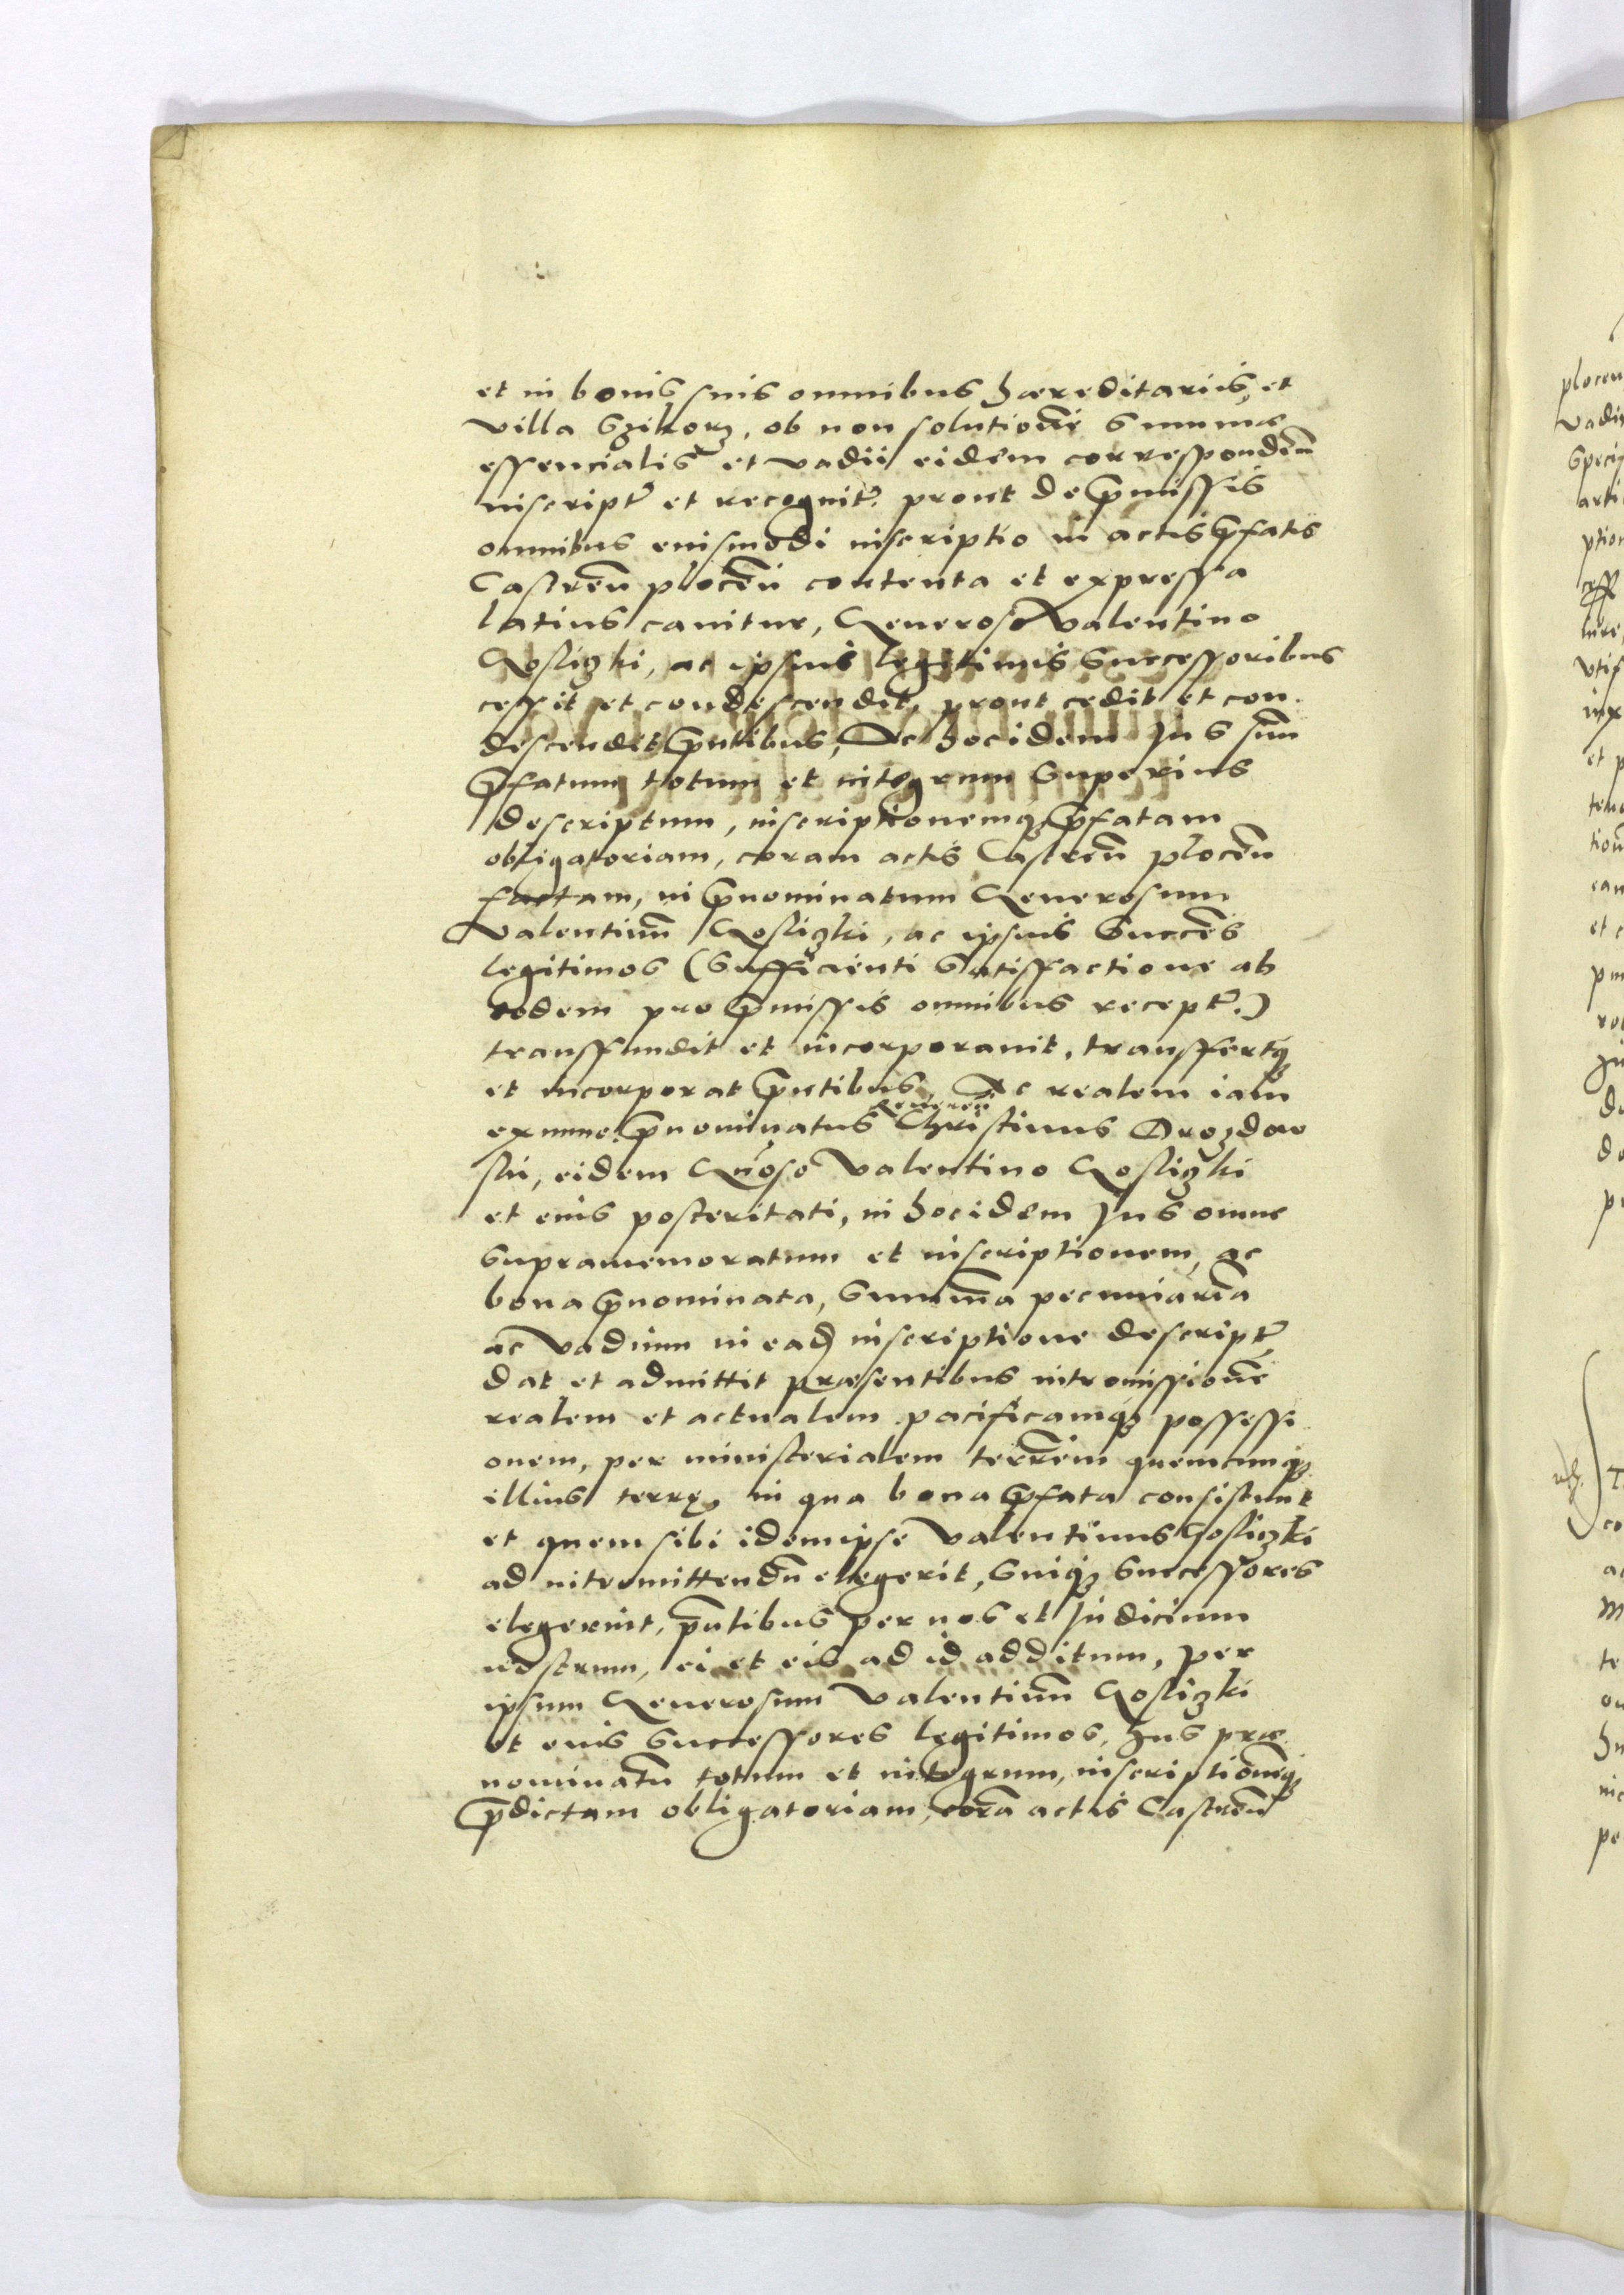 et in bonis suis omnibus hæreditariis, et
villa Szikorz, ob non solutionē Summæ
essencialis et vadii eidem correspondeñ
inscript̃ et recognit̃. prout de p̄missis
omnibus eiusmodi inscriptio in actis p̄fatis
Castreñ ploceñ contenta et expressa
latius canitur, Generoso Valentino
Gosliczki, ac ipsius legitimis Successoribus
cessit et condescendit, prout cedit et con
descendit p̄ntibus, Ac hoc idem Jus suū
p̄fatum totum et integrum Superius
descriptum, inscriptionemq; p̄fatam
obligatoriam, coram actis Castreñ ploceñ
factam, in p̄nominatum Generosum
Valentinū Gosliczki, ac ipsius Succēs
legitimos (Sufficienti Satisffactione ab
eodem pro p̄missis omnibus recept̃.)
transffundit et incorporavit, transffertq;
et incorporat p̄ntibus, Ac realem iam
ex nunc p̄nominatus Generosus Christinus Drozdow
ski, eidem Gn̄oso Valentino Gosliczki
et eius posteritati, in hoc idem Jus omne
Supramemoratum et inscriptionem, ac
bona p̄nominata, Summā pecuniariā
ac Vadium in ead inscriptione descript̃,
dat et admittit præsentibus intromissionē
realem et actualem pacificamq; possessi
onem, per ministerialem terrēm quemcunq;
illius terrę, in qua bona p̄fata consistunt
et quem sibi idem ipse Valentinus Gosliczki
ad intromittendū elegerit, Suiq; Successores
elegerint, p̄ntibus per nos et Judicium
nostrum, ei et eis ad id additum, per
ipsum Generosum Valentinū Gosliczki
et eius Successores legitimos, Jus præ
nominatū totum et integrum, inscriptionēq;
p̄dictam obligatoriam, corā actis Castreñ